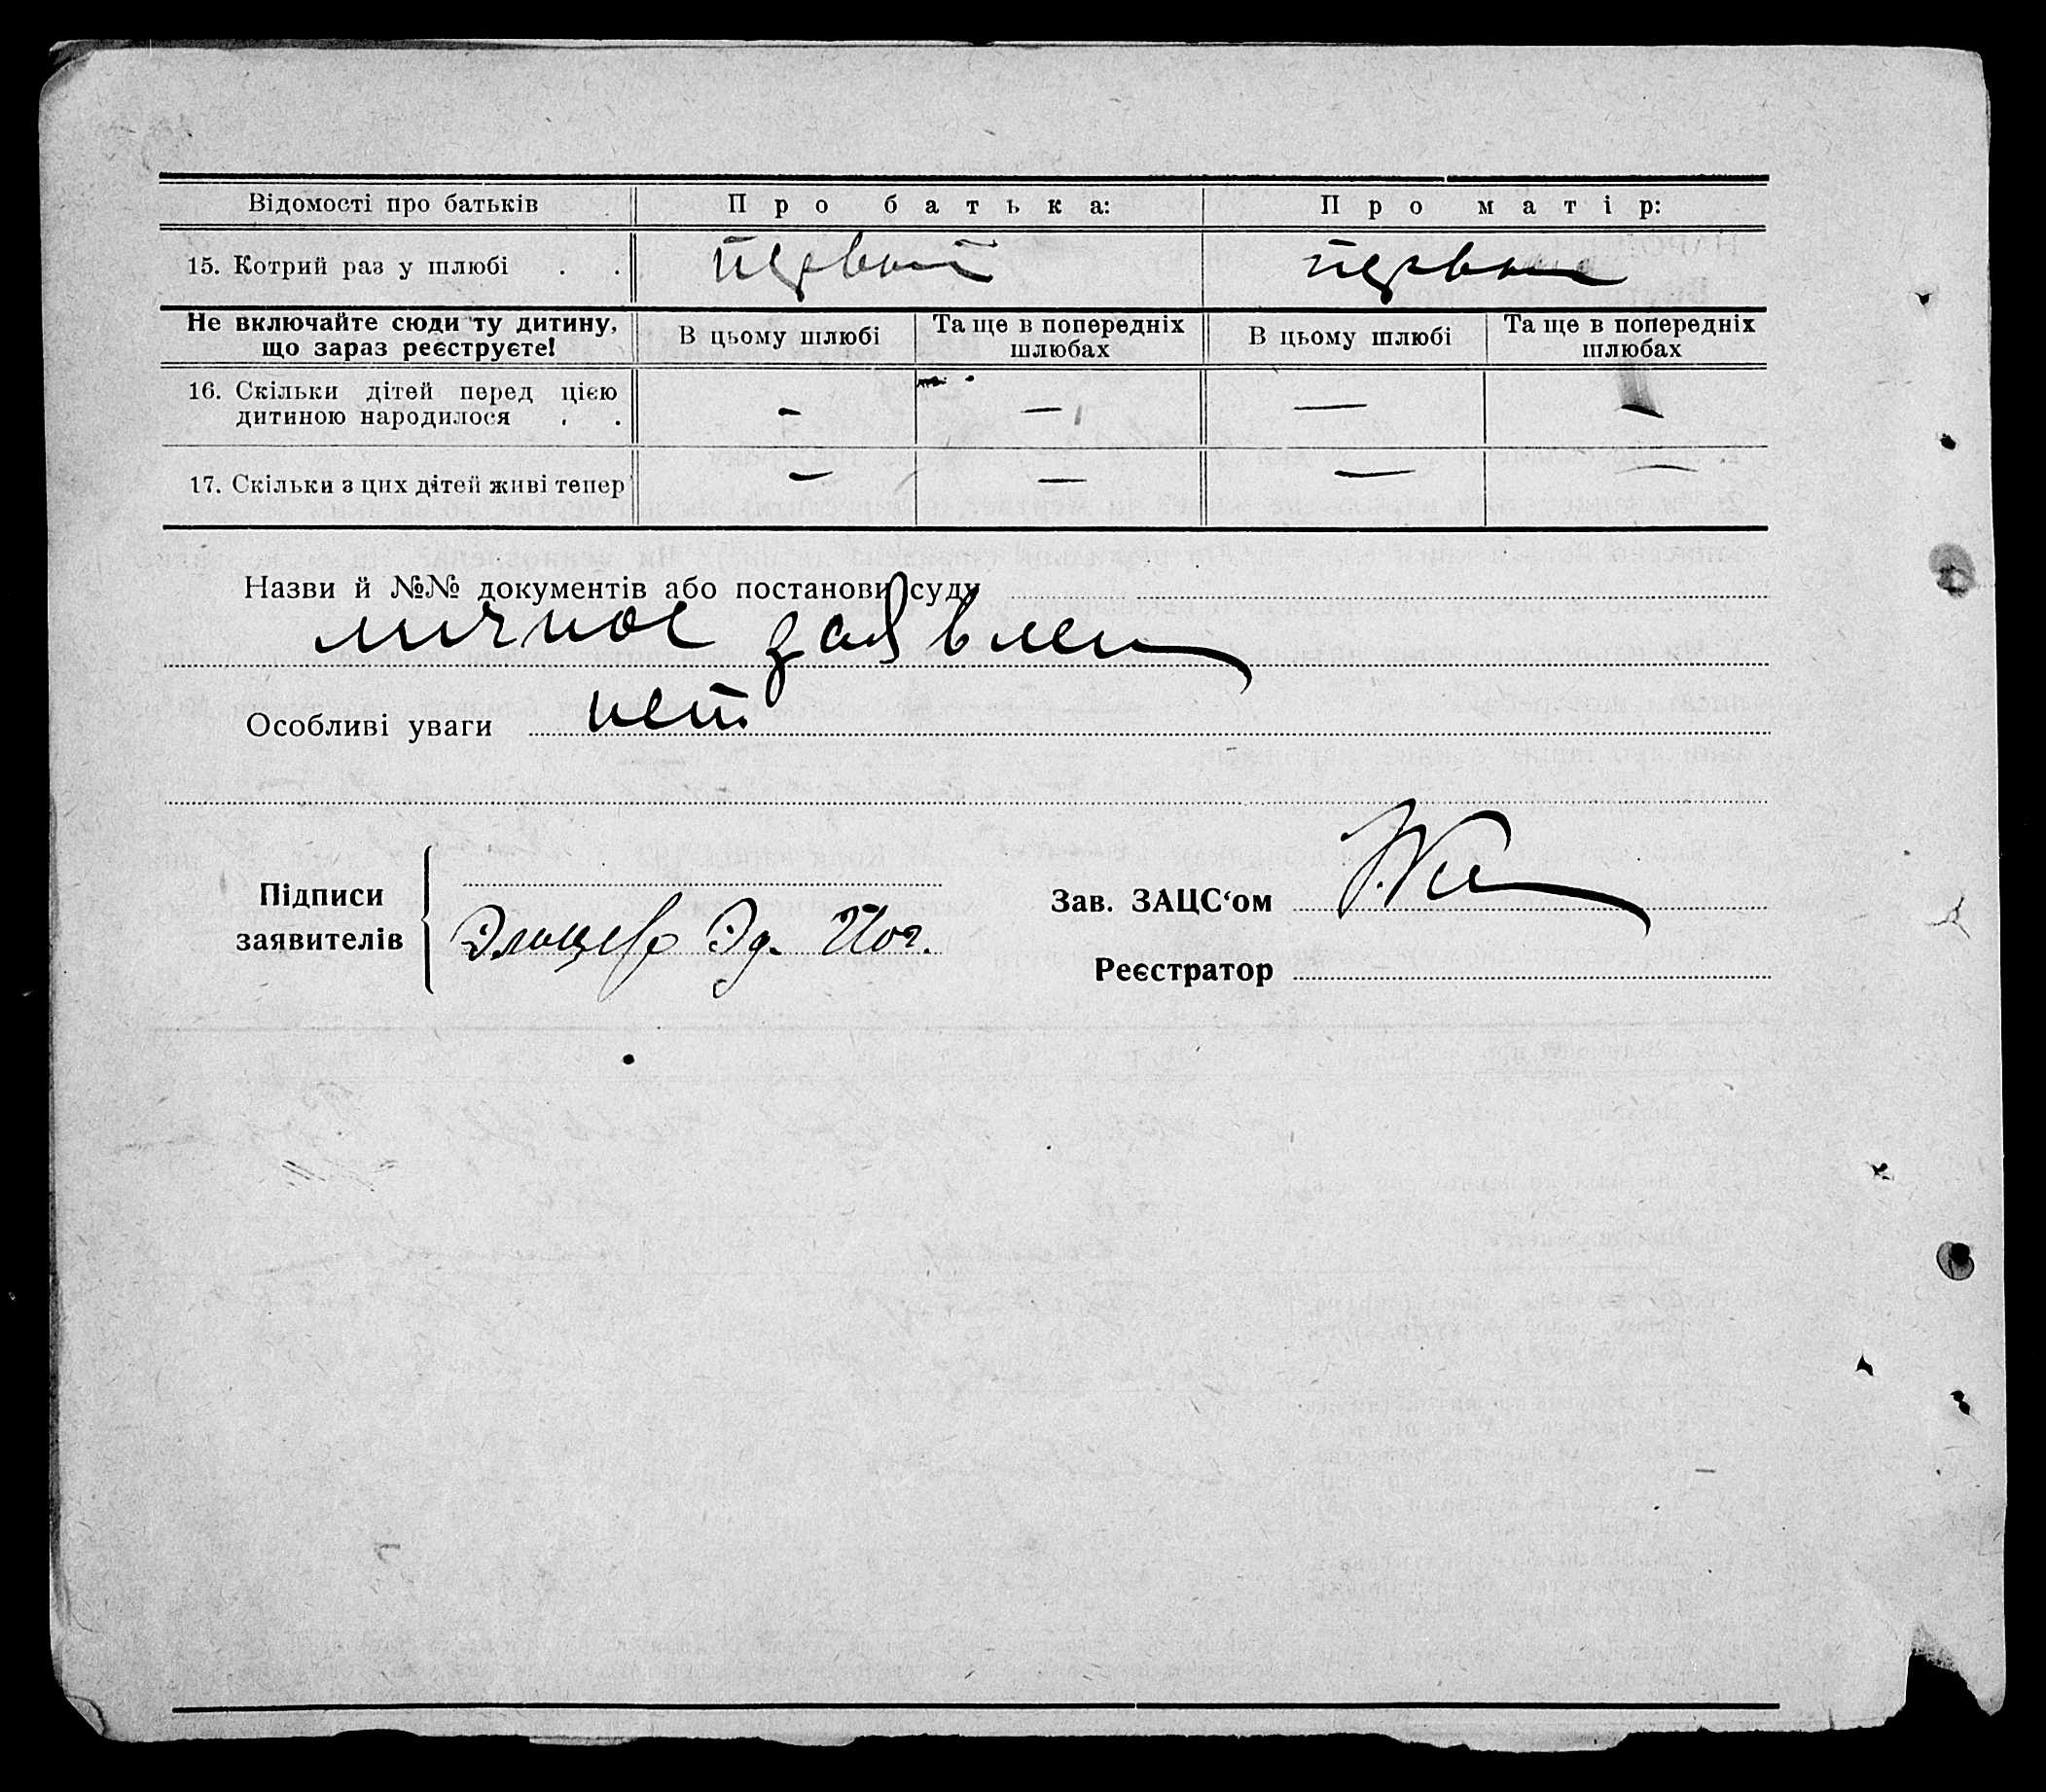 Відомості про батьків Про батька: Про матір:
15. Котрий раз у шлюбі . . первый первый
Не включайте сюди ту дитину, що зараз реєструєте! В цьому шлюбі Та ще в попередніх шлюбах В цьому шлюбі Та ще в попередніх шлюбах
16. Скільки дітей перед цією
дитиною народилося . . — — — —
17. Скільки з цих дітей живі тепер — — — —
Назви й №№ документів або постанови суду
личное заявлен
Особливі уваги нет.
Підписи
заявителів Эд. Иог.
Зав. ЗАЦС‘ом
Реєстратор